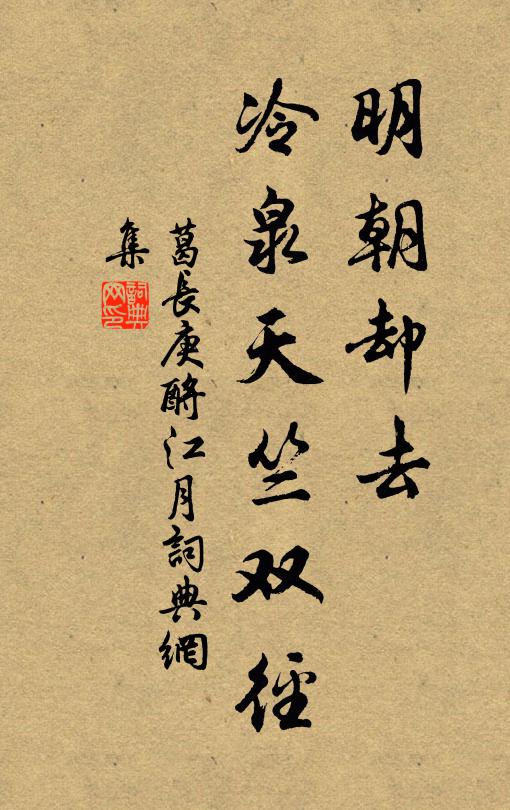 明朝却去
冷泉天竺双径
葛長庚酹江月詞典網
集
詞典
网印